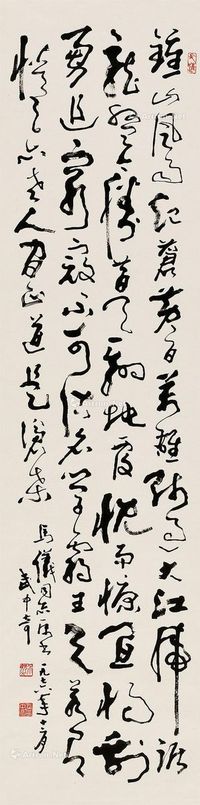 鍾山風雨起蒼黄百万雄师过大江虎踞
龍盘今勝昔天翻地覆慨而慷宜将剩
勇追穷寇不可沽名学霸王天若有
情天亦老人间正道是滄桑
馬儀同志 一九七六年十二月
武中奇